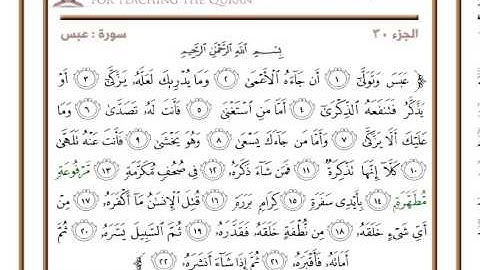 FOR TEACHING THE QURAN
سورة : عبس
الجزء ٣٠
بِسْمِ ٱللَّهِ ٱلرَّحْمَٰنِ ٱلرَّحِيمِ
﴿ عَبَسَ وَتَوَلَّىٰٓ ١ أَن جَآءَهُ ٱلْأَعْمَىٰ ٢ وَمَا يُدْرِيكَ لَعَلَّهُۥ يَزَّكَّىٰٓ ٣ أَوْ
يَذَّكَّرُ فَتَنفَعَهُ ٱلذِّكْرَىٰٓ ٤ أَمَّا مَنِ ٱسْتَغْنَىٰ ٥ فَأَنتَ لَهُۥ تَصَدَّىٰ ٦ وَمَا
عَلَيْكَ أَلَّا يَزَّكَّىٰ ٧ وَأَمَّا مَن جَآءَكَ يَسْعَىٰ ٨ وَهُوَ يَخْشَىٰ ٩ فَأَنتَ عَنْهُ تَلَهَّىٰ
١٠ كَلَّآ إِنَّهَا تَذْكِرَةٌ ١١ فَمَن شَآءَ ذَكَرَهُۥ ١٢ فِي صُحُفٍ مُّكَرَّمَةٍ ١٣ مَّرْفُوعَةٍ
مُّطَهَّرَةٍۭ ١٤ بِأَيْدِي سَفَرَةٍ ١٥ كِرَامٍۭ بَرَرَةٍ ١٦ قُتِلَ ٱلْإِنسَٰنُ مَآ أَكْفَرَهُۥ ١٧ مِنْ
أَيِّ شَيْءٍ خَلَقَهُۥ ١٨ مِن نُّطْفَةٍ خَلَقَهُۥ فَقَدَّرَهُۥ ١٩ ثُمَّ ٱلسَّبِيلَ يَسَّرَهُۥ ٢٠ ثُمَّ
أَمَاتَهُۥ فَأَقْبَرَهُۥ ٢١ ثُمَّ إِذَا شَآءَ أَنشَرَهُۥ ٢٢ ﴾